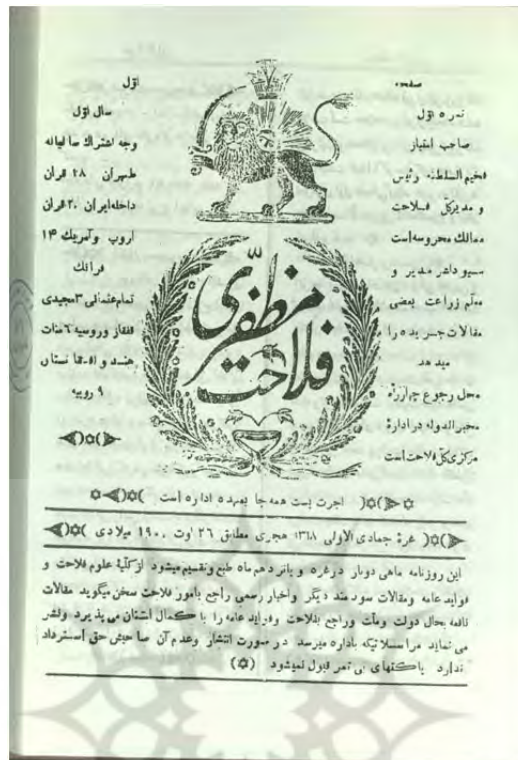 صفحه
نمره اوّل
صاحب امتیاز
فخیم السلطنه رئیس
و مدیر کلّ فلاحت
ممالک محروسه است
مسیو داشر مدیر و
معلّم زراعت بعضی
مقالات جریده را
میدهد
محل رجوع چهارراه
مخبرالدوله در ادارهٔ
مرکزی کلّ فلاحت است
اوّل
سال اوّل
وجه اشتراک سالیانه
طهران ۲۸ قران
داخله ایران ۳۰ قران
اروپ و آمریک ۱۴
فرانک
تمام عثمانی ۳ مجیدی
قفقاز و روسیه ۶ منات
هندوافغانستان
۹ روپیه
فلاحت مظفّری
اجرت پست همه جا بعهده اداره است
غرهٔ جمادی الاولی ۱۳۱۸ هجری مطابق ۲۶ اوت ۱۹۰۰ میلادی
این روزنامه ماهی دوبار در غره و پانزدهم ماه طبع و تقسیم میشود از کلیهٔ علوم فلاحت و
فواید عامه و مقالات سودمند دیگر و اخبار رسمی راجع بامور فلاحت سخن میگوید مقالات
نافعه بحال دولت و ملّت و راجع بفلاحت و فواید عامه را با کمال امتنان می پذیرد و نشر
می نماید مراسلاتیکه باداره میرسد در صورت انتشار و عدم آن صاحبش حق استرداد
ندارد پاکتهای بی تمر قبول نمیشود